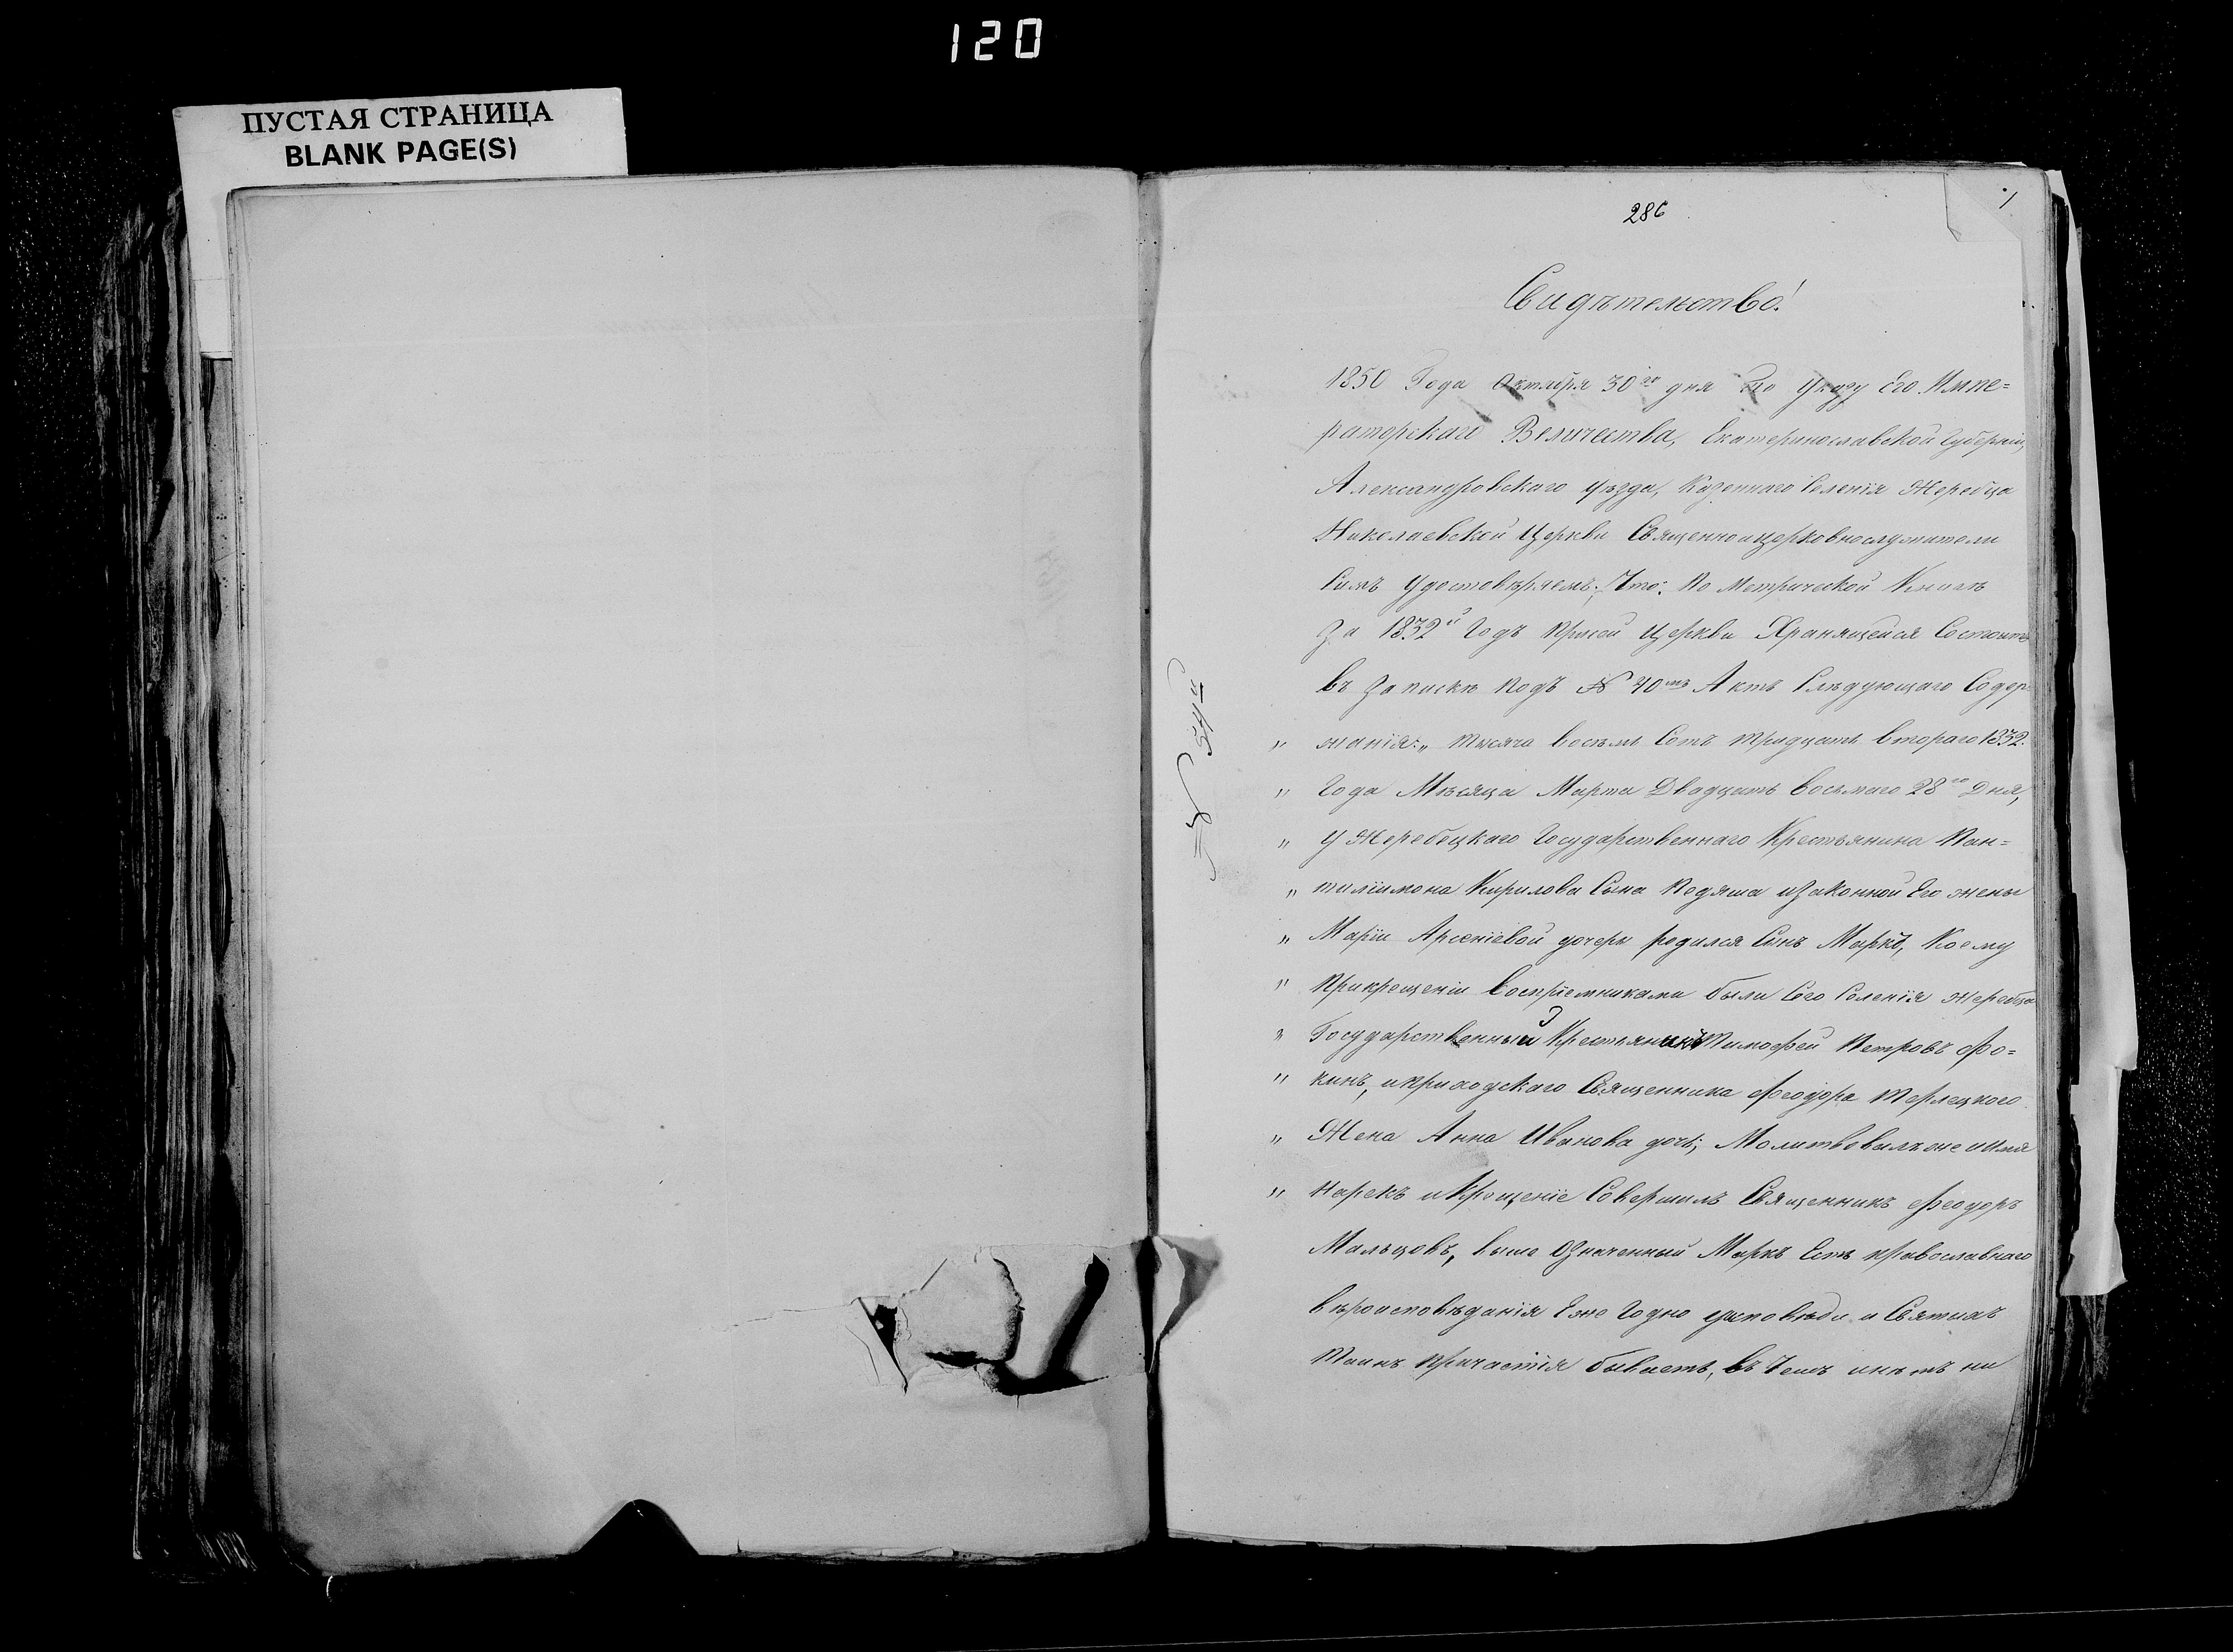 120
ПУСТАЯ СТРАНИЦА
BLANK PAGE(S)
286
1
Свидѣтельство!
1850 Года Октября 30го дня По Указу Его Импе=
раторскаго Величества, Екатеринославской Губерніи,
Александровскаго уѣзда, Казеннаго Селенія Жеребца
Николаевской Церкви Священноицерковнослужители
Симъ Удостовѣряемъ: Что: По Метрической Книгѣ
За 1832й Годъ При сей Церкви Хранящейся Состоитъ
въ Запискѣ подъ № 40мъ Актъ Слѣдующаго Содер
„ жанія: „ тысяча восемь Сотъ тридцать втораго 1832.
„ Года Мѣсяца Марта Двадцать восьмаго 28го Дня,
„ У Жеребецкаго Государственнаго Крестьянина Пан=
„ тилиимона Кирилова Сына изаконной Его жены
„ Маріи Арсеніевой дочери родился Сынъ Маркъ, Коему
„ Прикрещеніи Воспріемниками были Сего Селенія Жеребца
„ Государственный Крестянинъ Тимофей Петровъ Фо=
„ кинъ, иприходскаго Священника Феодора Терлецкого
„ Жена Анна Иванова дочь; Молитвовалъже иимя
„ Нарекъ иКрещеніе Совершилъ Священникъ Феодоръ
Мальцовъ, выше Означенный Маркъ Есть православнаго
вѣроисповѣданія Еже Годно уисповѣди и Святыхъ
Таинъ Причастія бываетъ, въ Чемъ инѣтъ ни